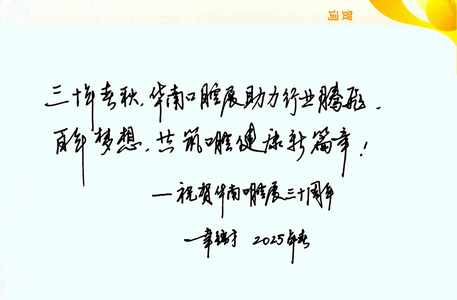 三十年春秋，华南口腔展助力行业腾飞，
百年梦想，共筑口腔健康新篇章！
—祝贺华南口腔展三十周年
2025年春